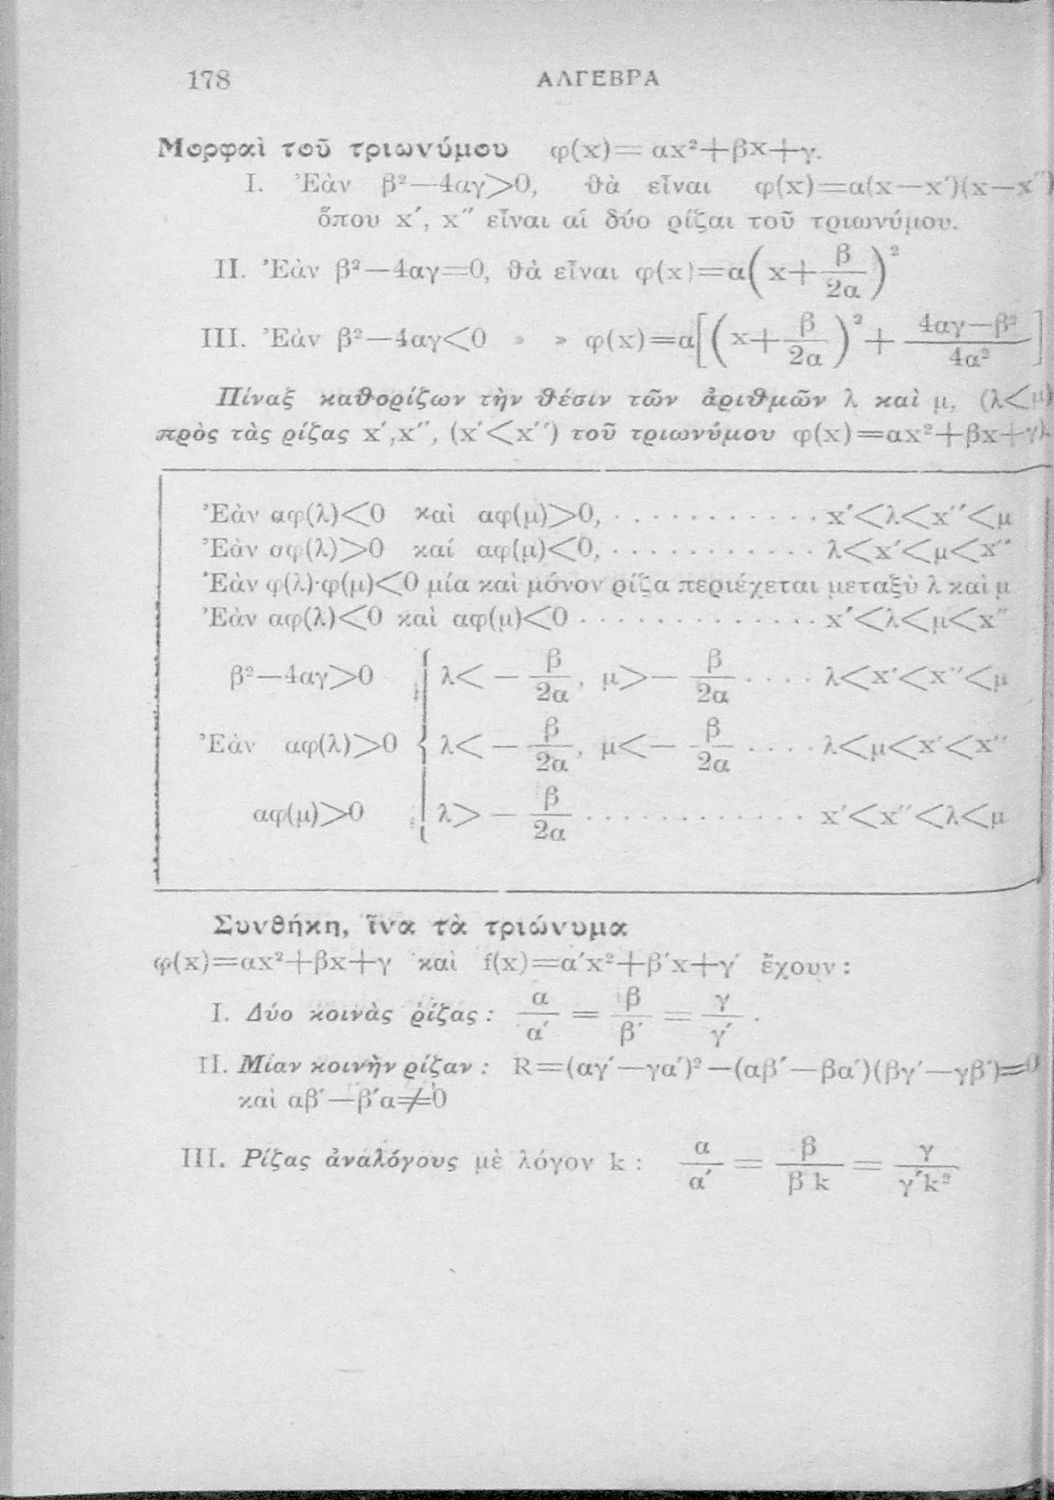 178 ΑΛΓΕΒΡΑ
Μορφαὶ τοῦ τριωνύμου φ(x)= αx²+βx+γ.
I. Ἐὰν β²—4αγ>0, θὰ εἶναι φ(x)=α(x—x′)(x—x″)
ὅπου x′, x″ εἶναι αἱ δύο ρίζαι τοῦ τριωνύμου.
II. Ἐὰν β²—4αγ=0, θὰ εἶναι φ(x)=α(x+β/2α)²
III. Ἐὰν β²—4αγ<0 » » φ(x)=α[(x+β/2α)²+(4αγ—β²)/4α²]
Πίναξ καθορίζων τὴν θέσιν τῶν ἀριθμῶν λ καὶ μ, (λ<μ)
πρὸς τὰς ρίζας x′,x″, (x′<x″) τοῦ τριωνύμου φ(x)=αx²+βx+γ).
Ἐὰν αφ(λ)<0 καὶ αφ(μ)>0, . . . . . . . . . . . x′<λ<x″<μ
Ἐὰν αφ(λ)>0 καί αφ(μ)<0, . . . . . . . . . . . λ<x′<μ<x″
Ἐὰν φ(λ)·φ(μ)<0 μία καὶ μόνον ρίζα περιέχεται μεταξὺ λ καὶ μ
Ἐὰν αφ(λ)<0 καὶ αφ(μ)<0 . . . . . . . . . . . . . x′<λ<μ<x″
β²—4αγ>0 { λ< — β/2α, μ>— β/2α . . . . λ<x′<x″<μ
Ἐὰν αφ(λ)>0 { λ< — β/2α, μ<— β/2α . . . . λ<μ<x′<x″
αφ(μ)>0 { λ> — β/2α . . . . . . . . . . . . x′<x″<λ<μ
Συνθήκη, ἵνα τὰ τριώνυμα
φ(x)=αx²+βx+γ καὶ f(x)=α′x²+β′x+γ′ ἔχουν :
I. Δύο κοινὰς ῥίζας : α/α′ = β/β′ = γ/γ′ .
II. Μίαν κοινὴν ρίζαν : R=(αγ′—γα′)²—(αβ′—βα′)(βγ′—γβ′)=0
καὶ αβ′—β′α≠0
III. Ρίζας ἀναλόγους μὲ λόγον k : α/α′ = β/β k = γ/γ′k²